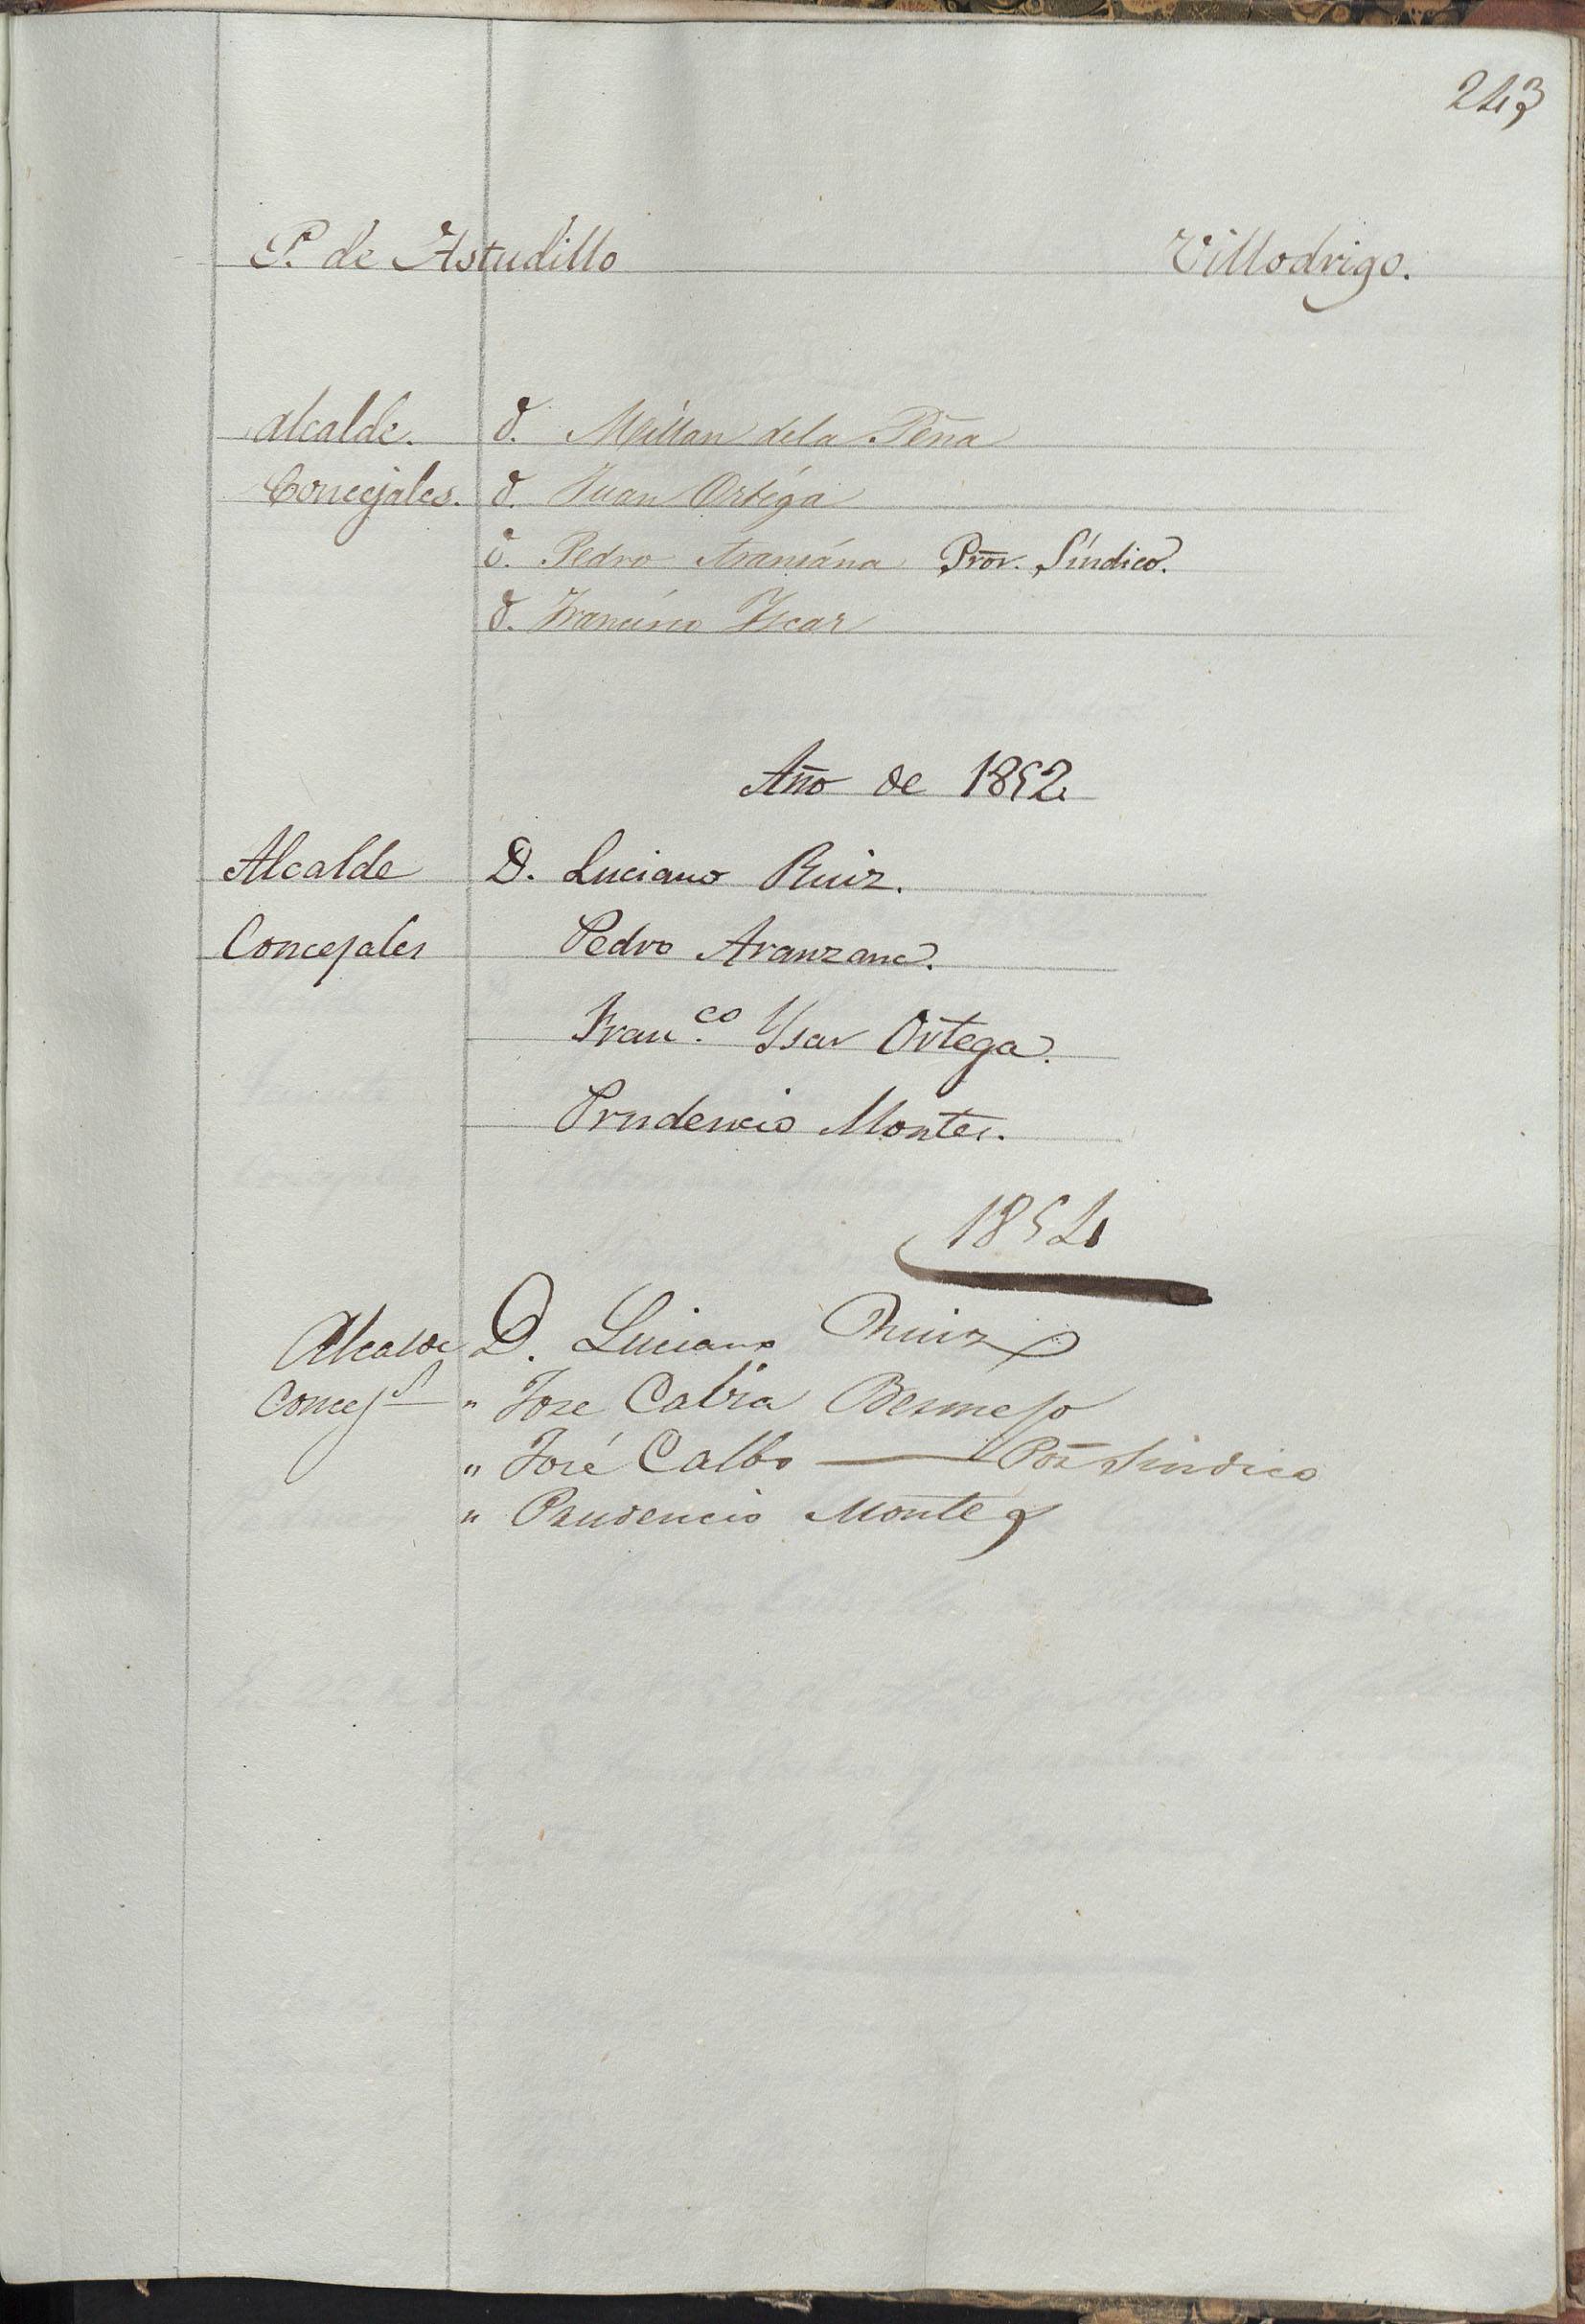 243
P. de Astudillo Villodrigo.
alcalde. D. Millan dela Peña
Concejales. D. Juan Ortéga
D. Pedro Aranzána Prōr. Síndico.
D. Francisco Yscar
Año de 1852.
Alcalde D. Luciano Ruiz.
Concejales Pedro Aranzana.
Fran.co Ysar Ortega.
Prudencio Montes.
1854
Alcalde D. Luciano Ruiz
Concejs " Jose Calva Bermejo
" José Calbo — Pōr Sindico
" Prudencio Montes